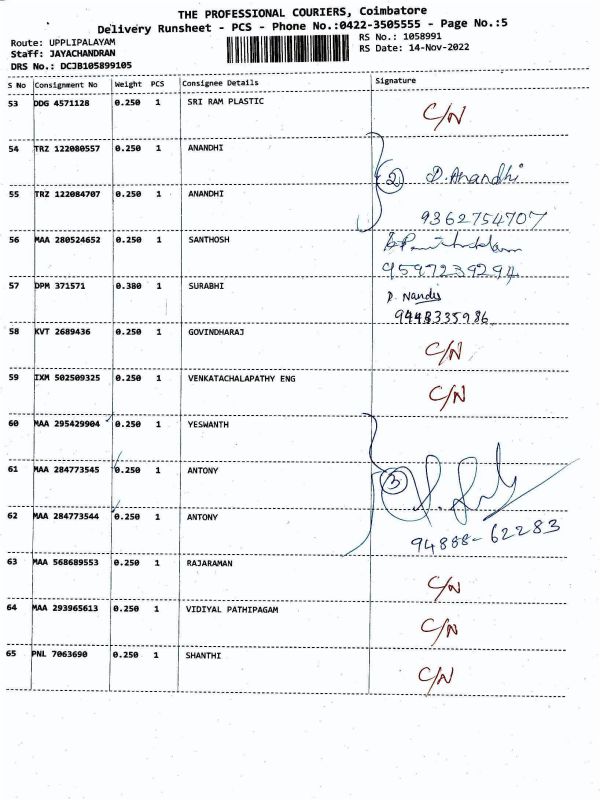 THE PROFESSIONAL COURIERS, Coimbatore
Delivery Runsheet - PCS - Phone No.:0422-3505555 - Page No.:5
Route: UPPLIPALAYAM
Staff: JAYACHANDRAN
DRS No.: DCJB105899105
RS No.: 1058991
RS Date: 14-Nov-2022
S No Consignment No Weight PCS Consignee Details Signature
53 DDG 4571128 0.250 1 SRI RAM PLASTIC C/N
54 TRZ 122080557 0.250 1 ANANDHI
2 D. Anandhi
55 TRZ 122084707 0.250 1 ANANDHI
9362754707
56 MAA 280524652 0.250 1 SANTHOSH
9597239294
57 DPM 371571 0.380 1 SURABHI
9448335986
58 KVT 2689436 0.250 1 GOVINDHARAJ C/N
59 IXM 502509325 0.250 1 VENKATACHALAPATHY ENG C/N
60 MAA 295429904 0.250 1 YESWANTH
61 MAA 284773545 0.250 1 ANTONY
3
62 MAA 284773544 0.250 1 ANTONY
94888-62283
63 MAA 568689553 0.250 1 RAJARAMAN C/N
64 MAA 293965613 0.250 1 VIDIYAL PATHIPAGAM C/N
65 PNL 7063690 0.250 1 SHANTHI C/N